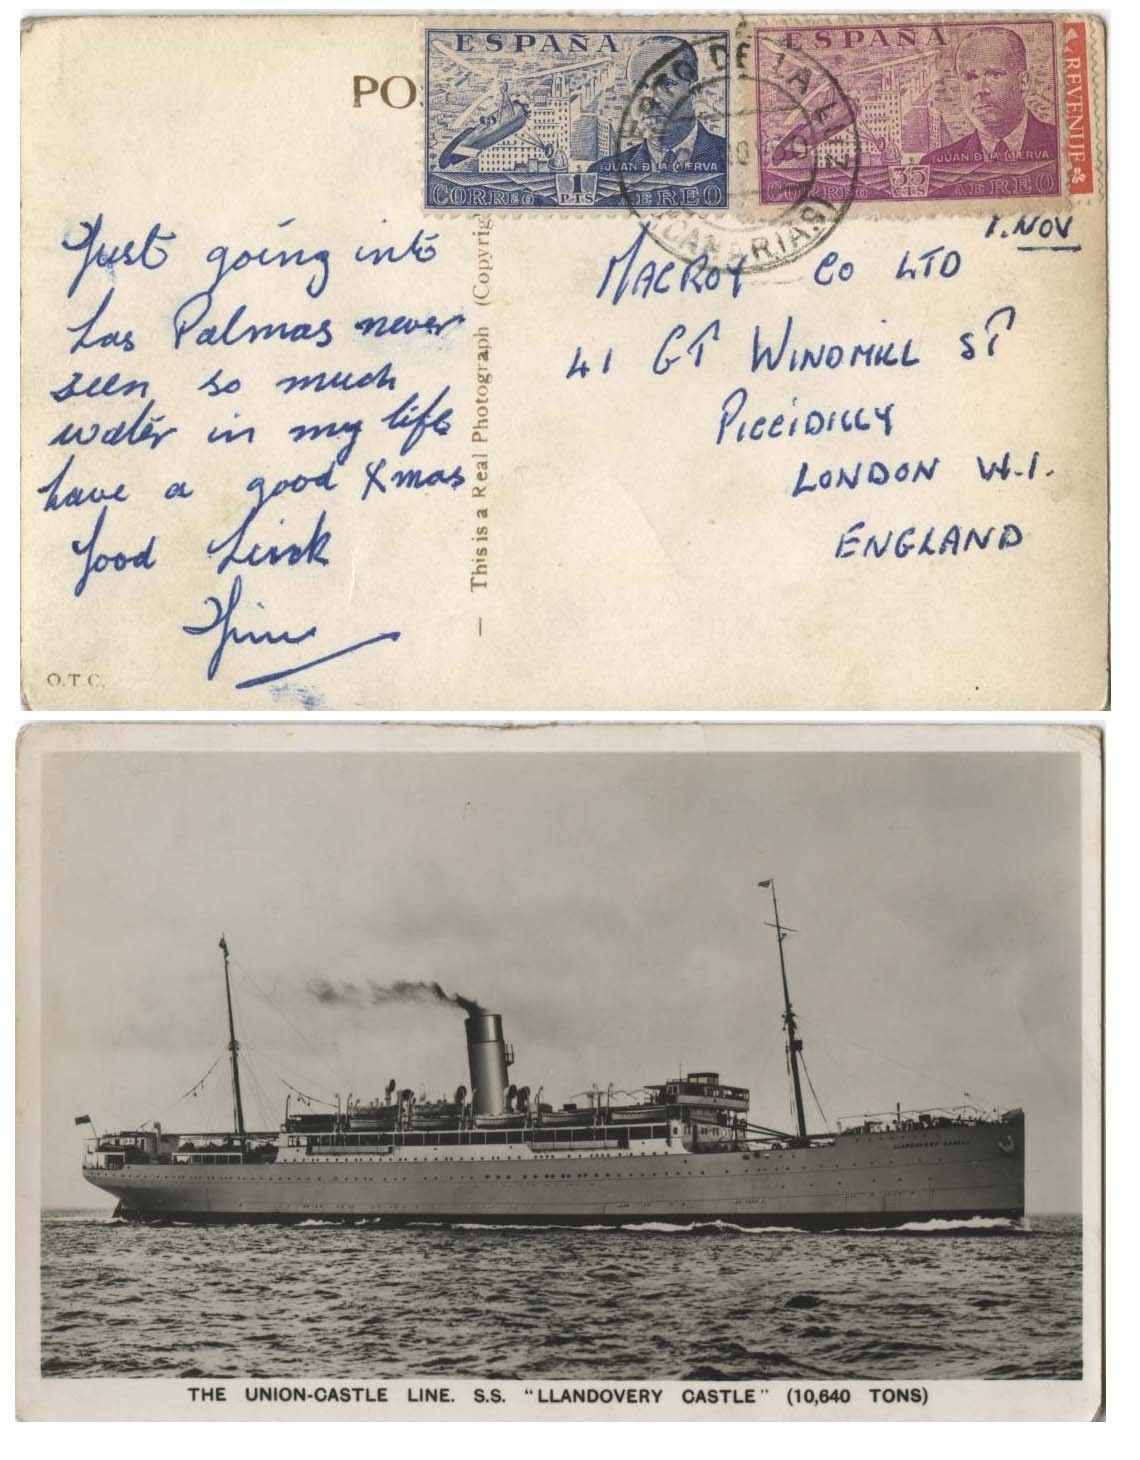 PO
ESPAÑA
JUAN DE LA CIERVA
1
PTS
CORREO AEREO
ESPAÑA
JUAN DE LA CIERVA
35
CTS
CORREO AEREO
REVENUE
DE LA LUZ
(CANARIAS)
1. NOV
Just going into
Las Palmas never
seen so much
water in my life
have a good Xmas
Good Luck
MACROY Co LTD
41 GT WINDMILL ST
PICCIDILLY
LONDON W.1.
ENGLAND
This is a Real Photograph (Copyrig
O.T.C.
LLANDOVERY CASTLE
THE UNION-CASTLE LINE. S.S. "LLANDOVERY CASTLE" (10,640 TONS)